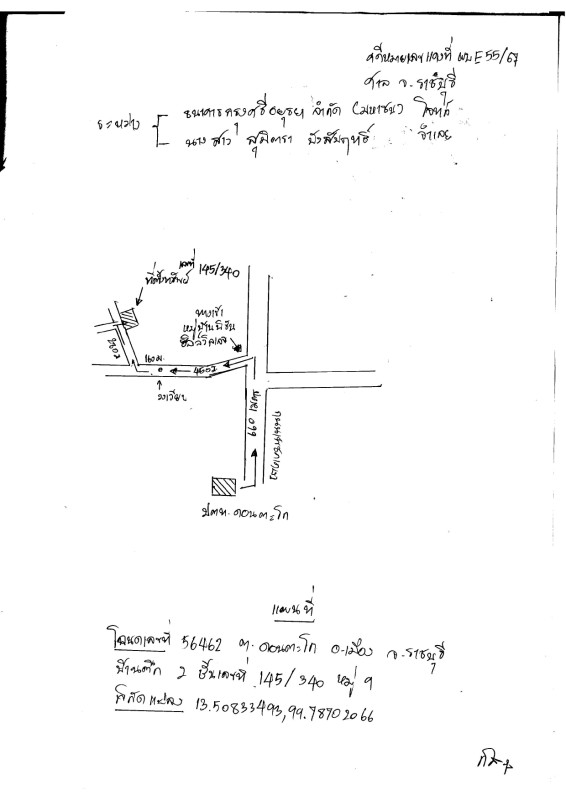 คดีหมายเลขแดงที่ ผบE55/67
ศาล จ.ราชบุรี
ระหว่าง ธนาคารกรุงศรีอยุธยา จำกัด (มหาชน) โจทก์
นางสาว สุมิตรา จำเลย
เลขที่ 145/340
ที่ตั้งทรัพย์
ทางเข้า
หมู่บ้าน
160ม.
460ม
วงเวียน
660 เมตร
ปตท. ดอนตะโก
แผนที่
โฉนดเลขที่ 56462 ต.ดอนตะโก อ.เมือง จ.ราชบุรี
บ้านตึก 2 ชั้นเลขที่ 145/340 หมู่ 9
พิกัดแปลง 13.50833493,99.78702066